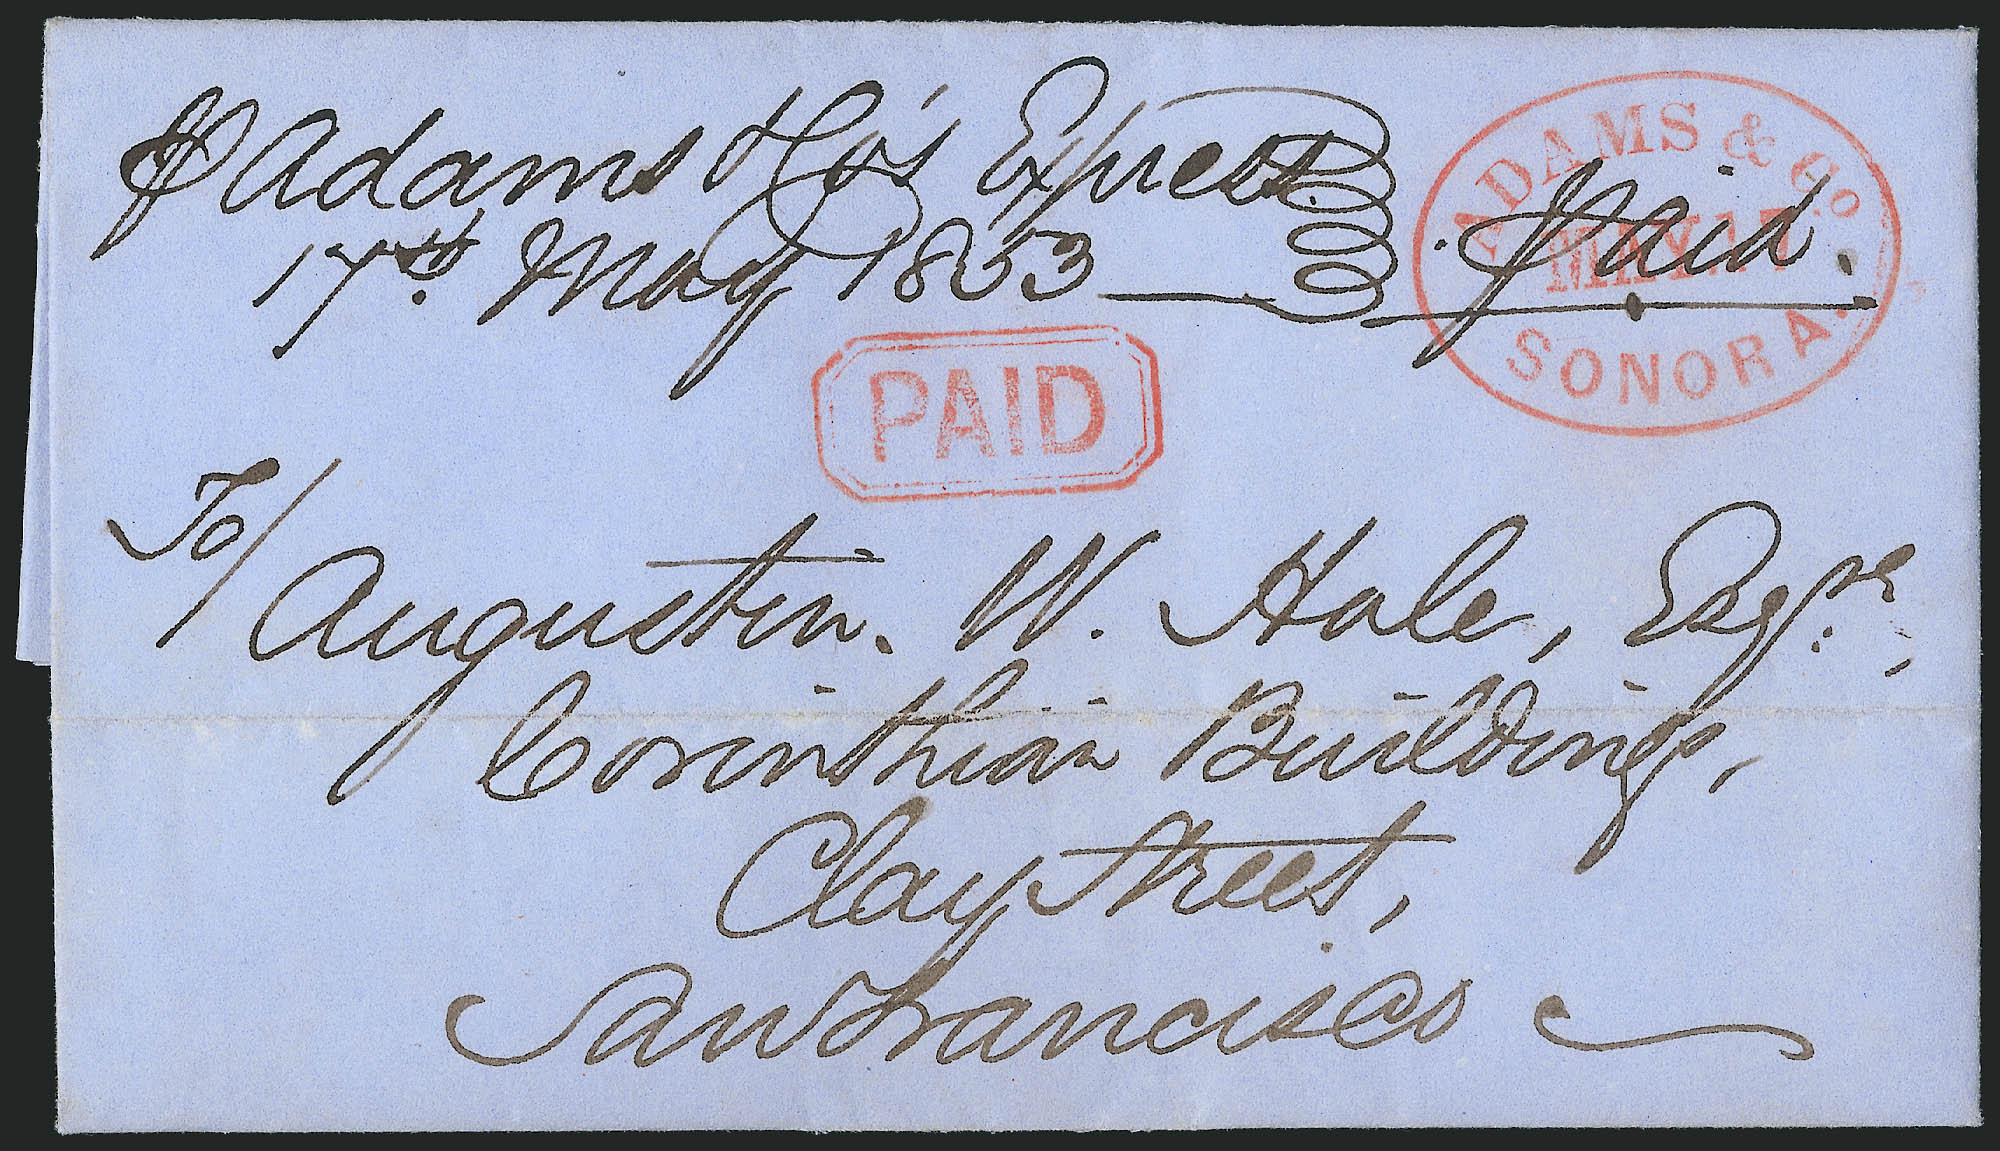 p Adams & Co's Express. Paid.
17th May 1853
ADAMS & Co.
MAY 17
SONORA.
PAID
To/
Augustin. W. Hale, Esqre,
Corinthian Buildings,
Clay Street,
San Francisco